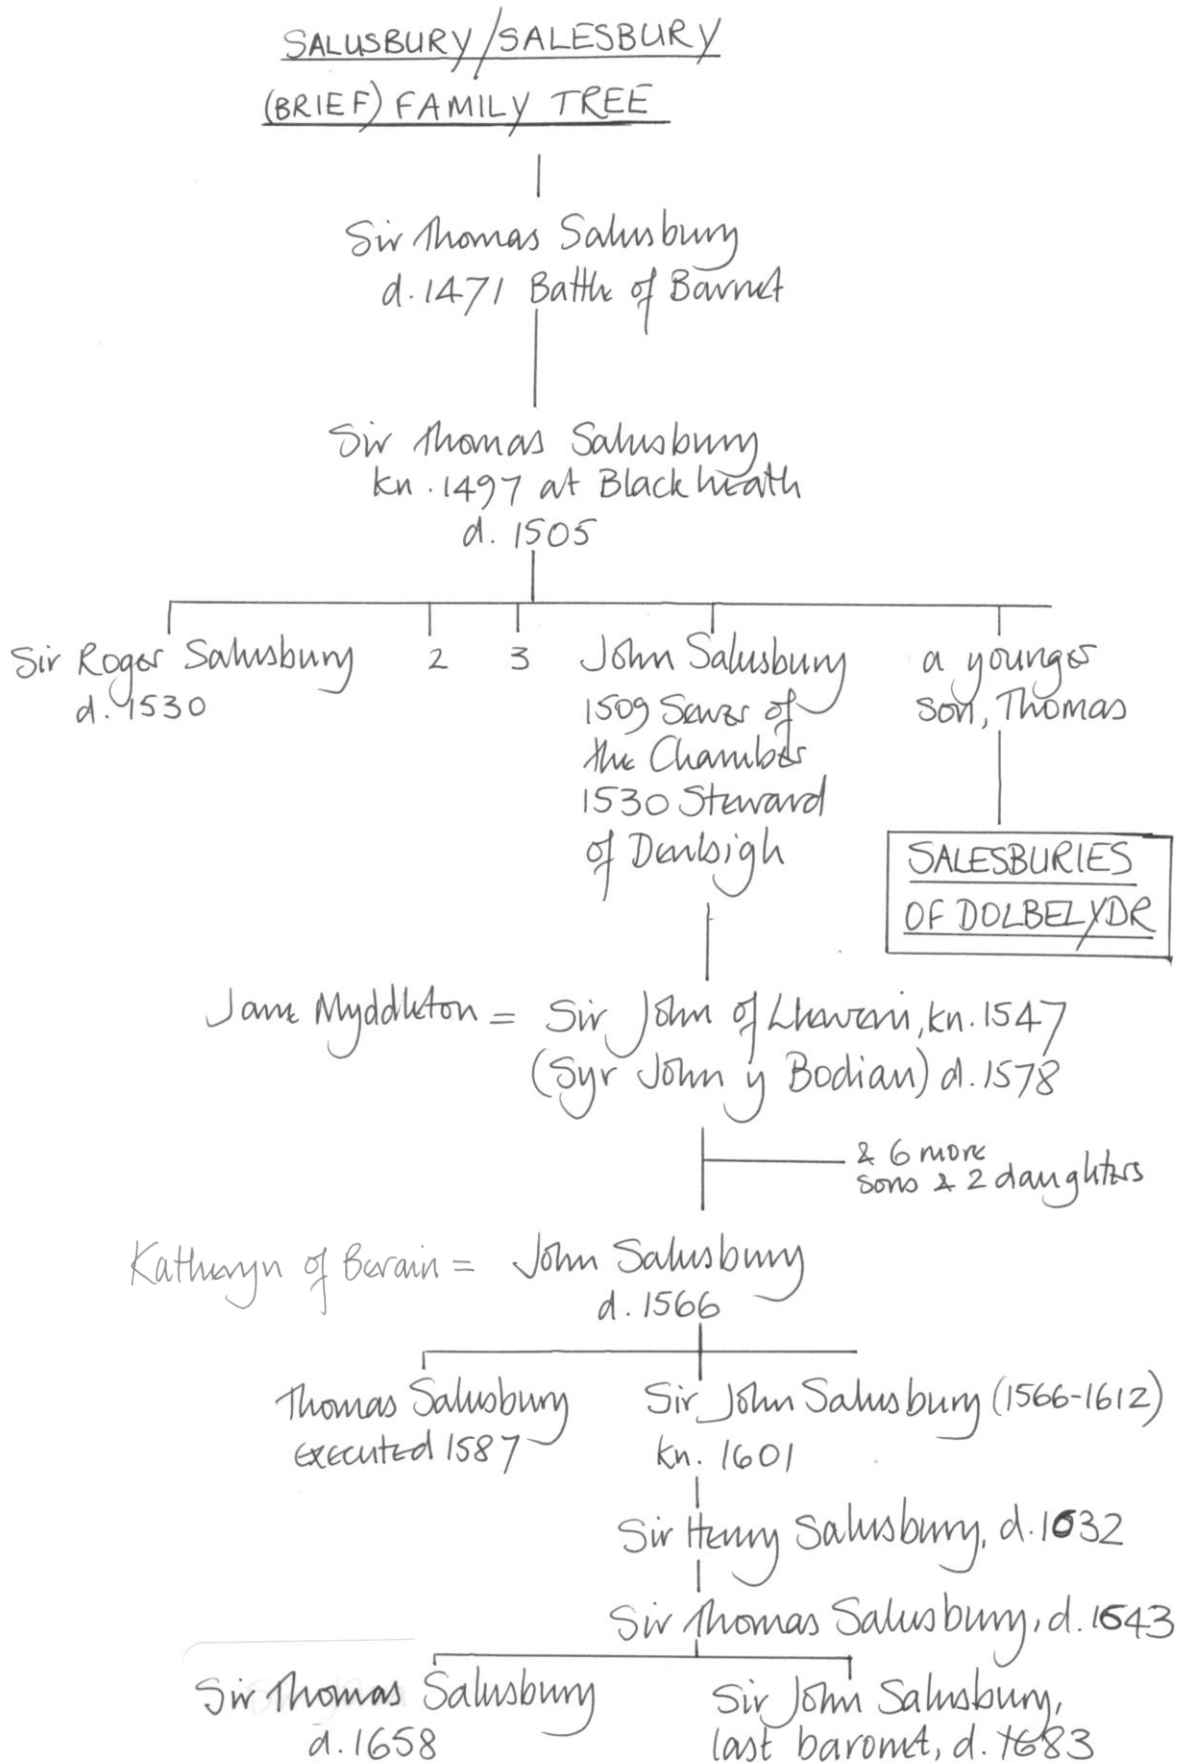 SALUSBURY/SALESBURY
(BRIEF) FAMILY TREE
Sir Thomas Salusbury
d. 1471 Battle of Barnet
Sir Thomas Salusbury
kn. 1497 at Blackheath
d. 1505
Sir Roger Salusbury
d. 1530
2
3
John Salusbury
1509 Sewer of
the Chamber
1530 Steward
of Denbigh
a younger
son, Thomas
SALESBURIES
OF DOLBELYDR
Jane Myddleton = Sir John of Lleweni, kn. 1547
(Syr John y Bodiau) d. 1578
& 6 more
sons & 2 daughters
Katheryn of Berain = John Salusbury
d. 1566
Thomas Salusbury
executed 1587
Sir John Salusbury (1566-1612)
kn. 1601
Sir Henry Salusbury, d. 1632
Sir Thomas Salusbury, d. 1643
Sir Thomas Salusbury
d. 1658
Sir John Salusbury,
last baronet, d. 1683